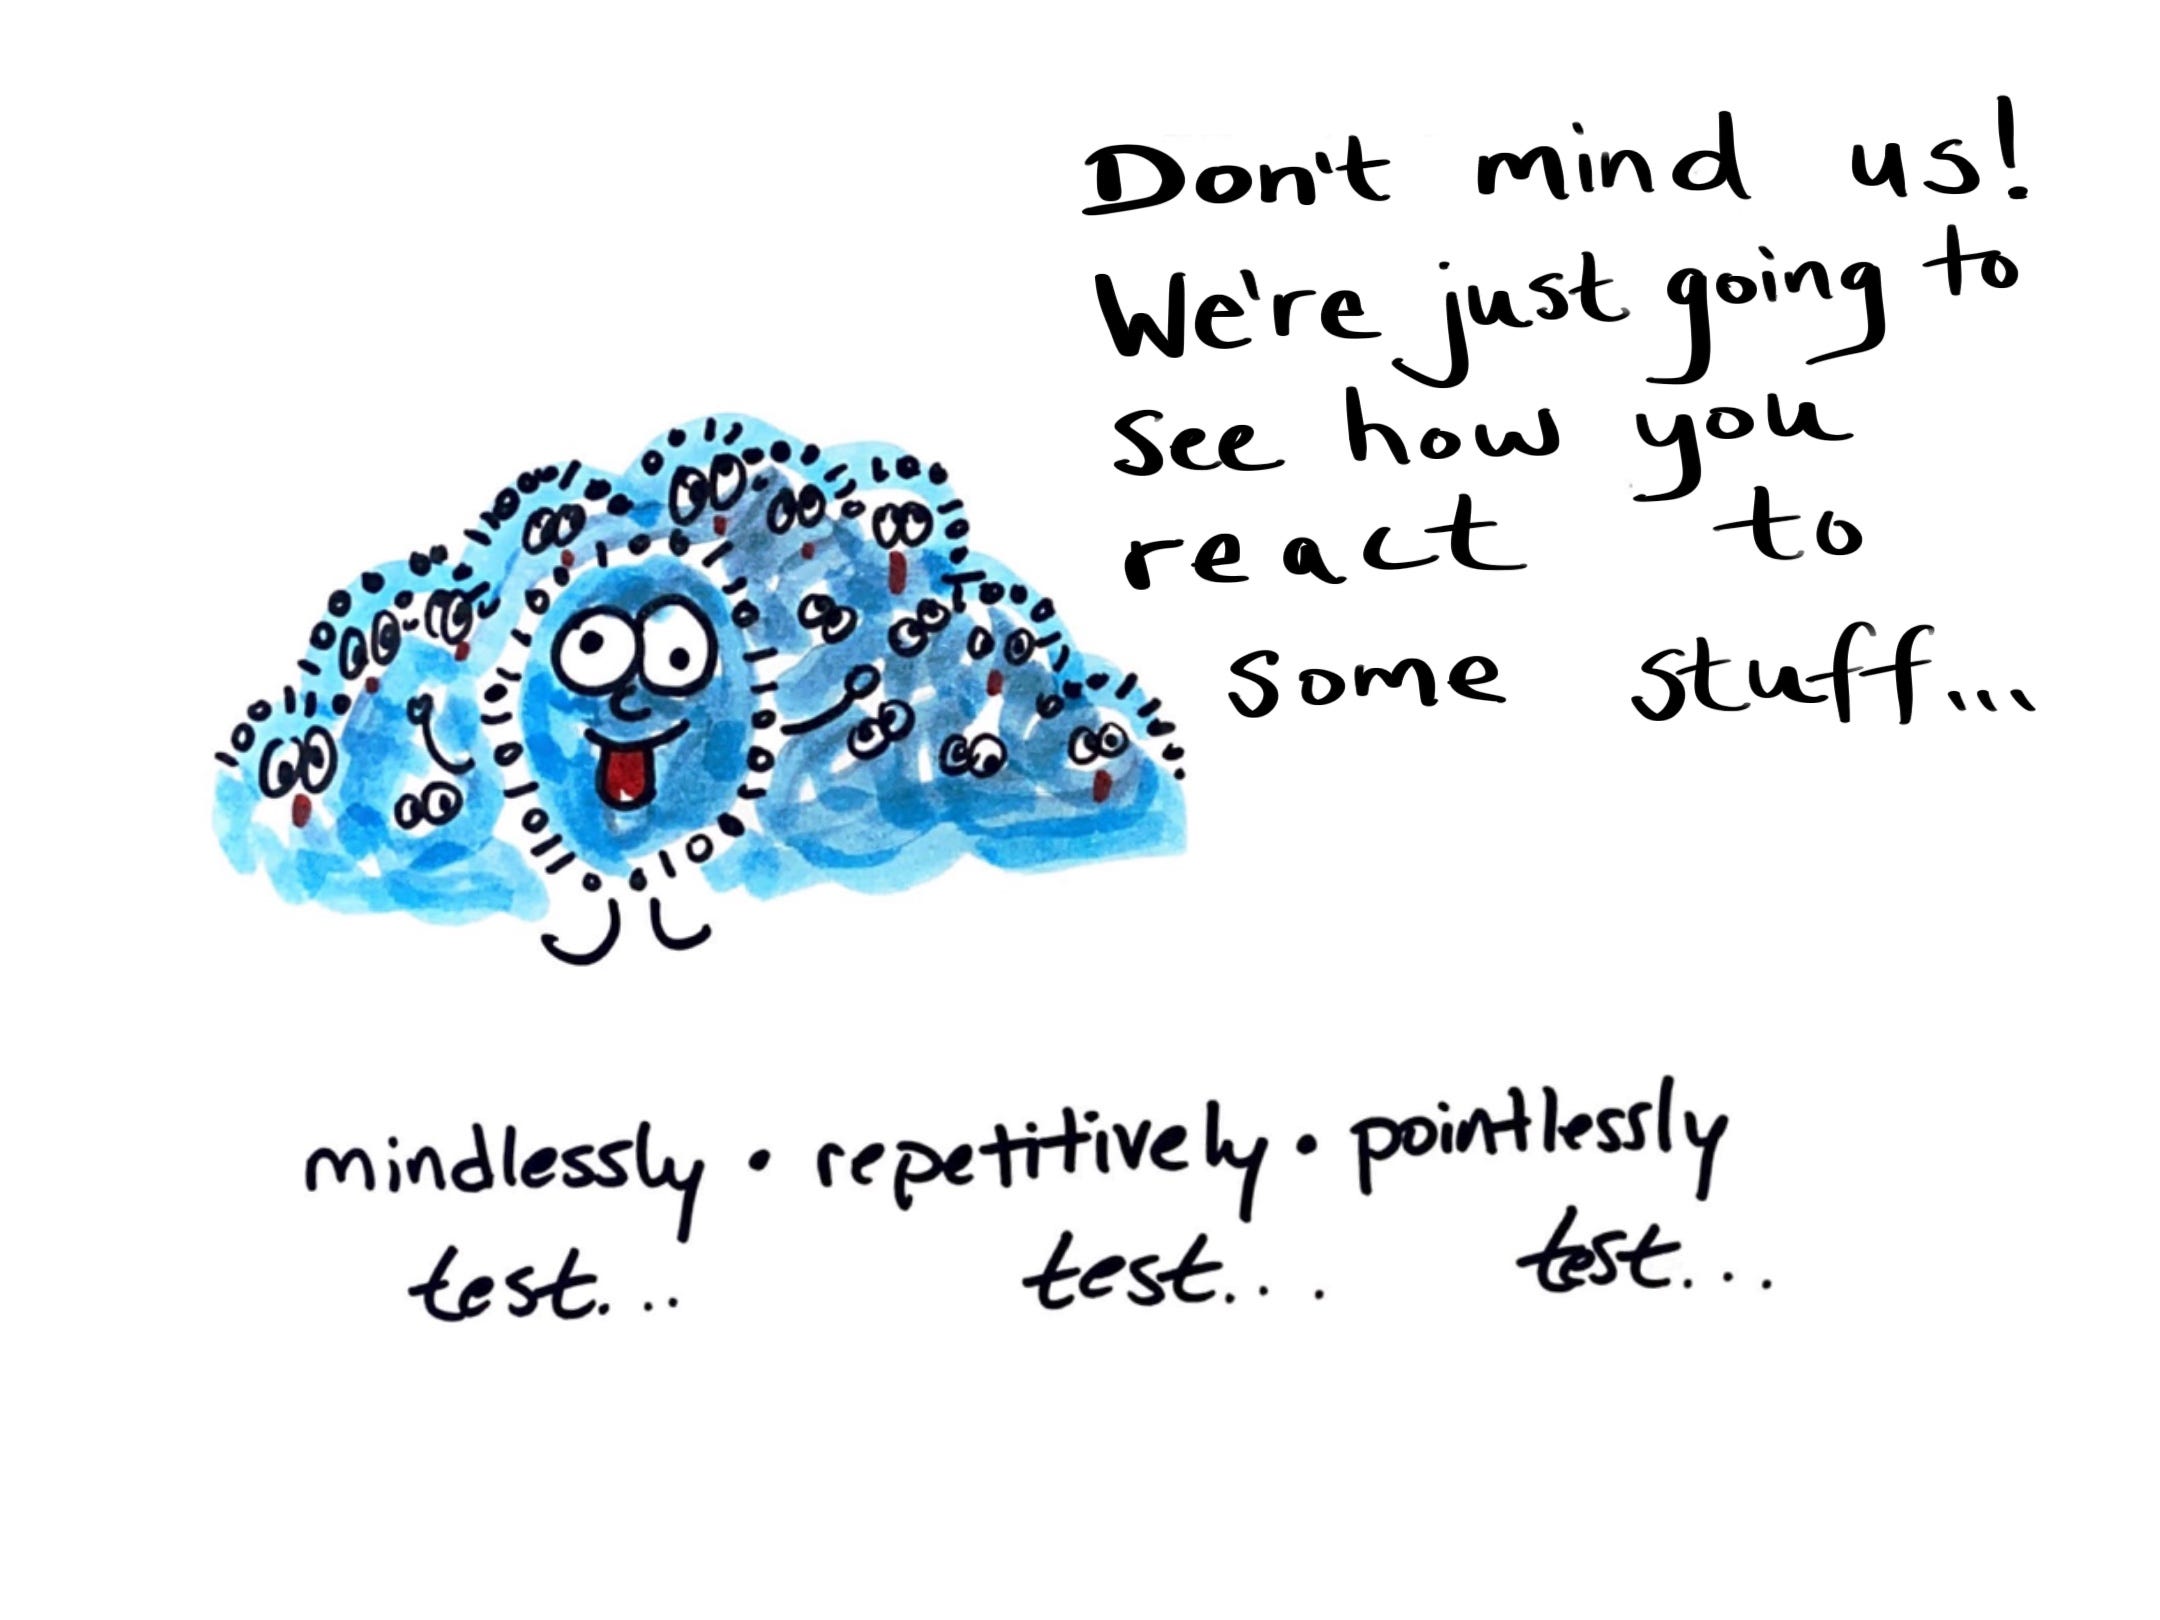 Don't mind us!
We're just going to
see how you
react to
some stuff...
mindlessly • repetitively • pointlessly
test... test... test...